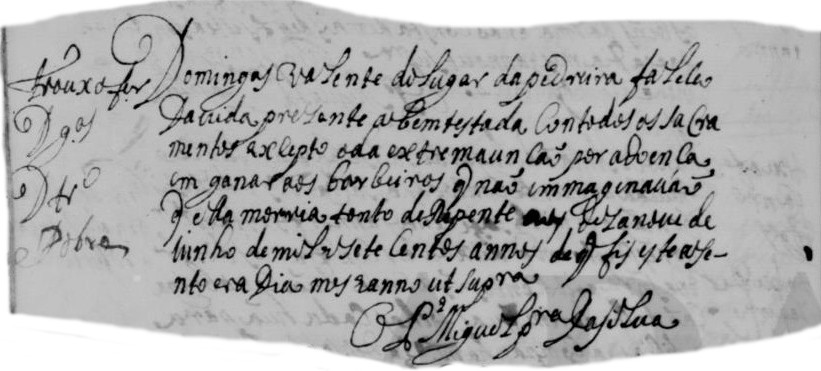 trouxo fer
Dgos
Dtro
Pobre
Domingas Valente do lugar da pedreira faleseo
Da vida prezente a bem testada Com todos os sacra
mentos exlepto o da extrema uncaõ por a doenca
em ganar aos barbeiros q̃ naõ immaginavaõ
q̃ ella morria tanto de Repente aos dezanove de
iunho de mil e sete Centos annos de q̃ fis este ase-
nto era Dia mes e anno ut supra
O P.e Miguel pra da Silva